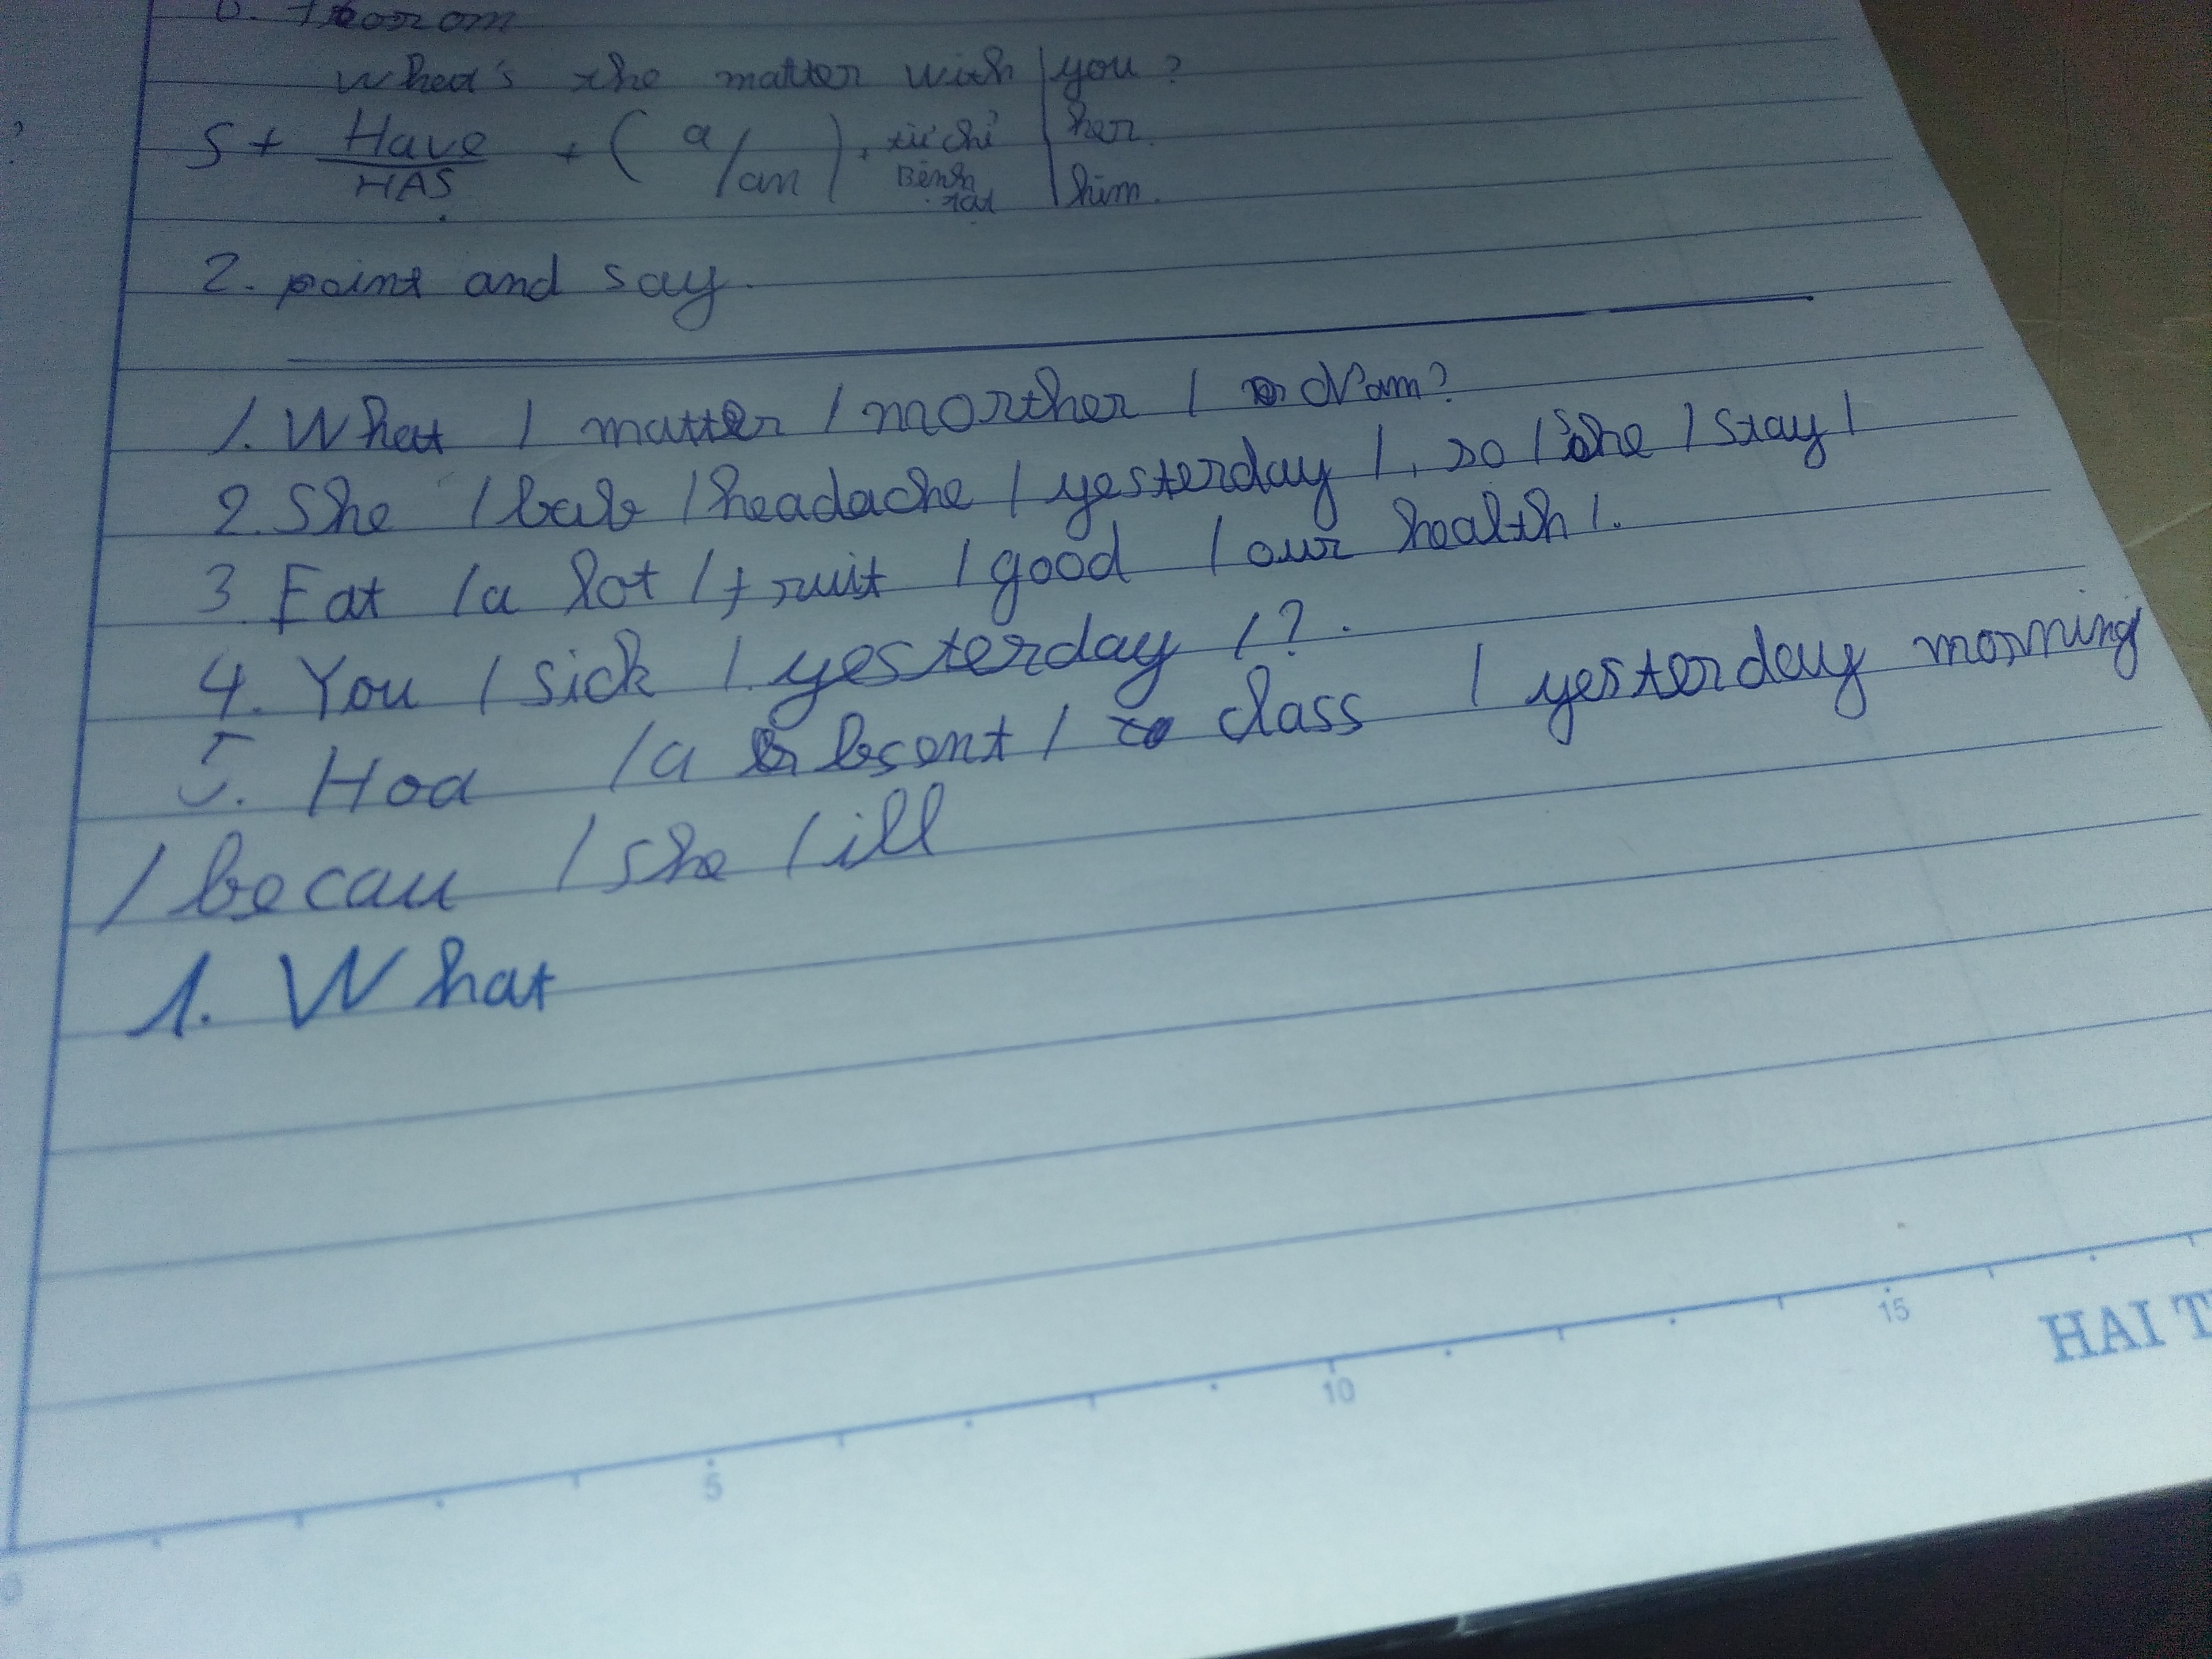 What's the matter with you?
S + Have + ( a / an ) + từ chỉ her.
HAS Bệnh tật him.
2. point and say.
1. What / matter / morther / Nam?
2. She / bab / headache / yesterday /, so / she / stay /
3 Eat / a lot / fruit / good / our health /.
4. You / sick / yesterday / ?.
5. Hoa / a bsent / class / yesterday morning
/ becau / she / ill
1. What
0 5 10 15
HAI T